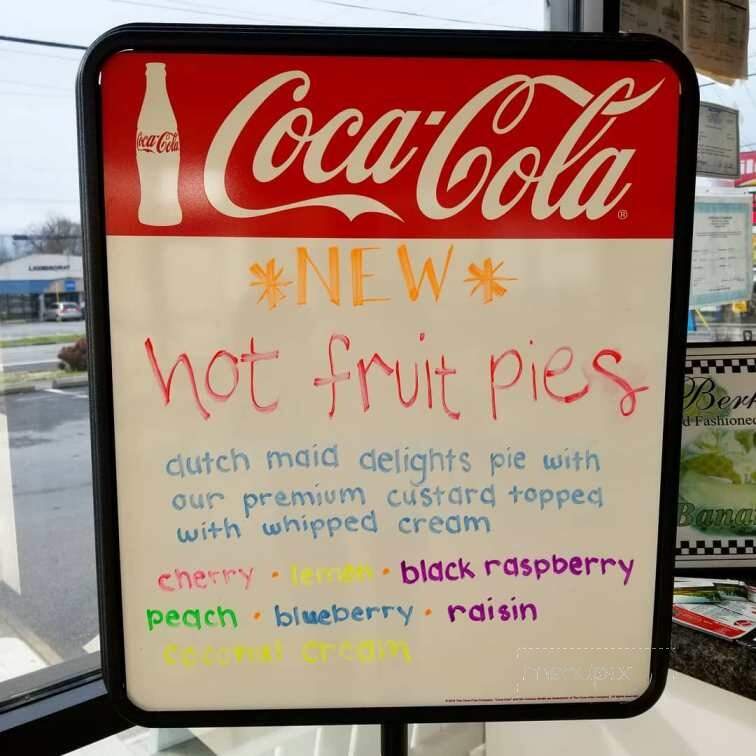 Coca-Cola
Coca-Cola ®
*NEW*
hot fruit pies
dutch maid delights pie with
our premium custard topped
with whipped cream
cherry • lemon • black raspberry
peach • blueberry • raisin
coconut cream
menupix
Berk
d Fashioned
Bana
LAUNDROMAT